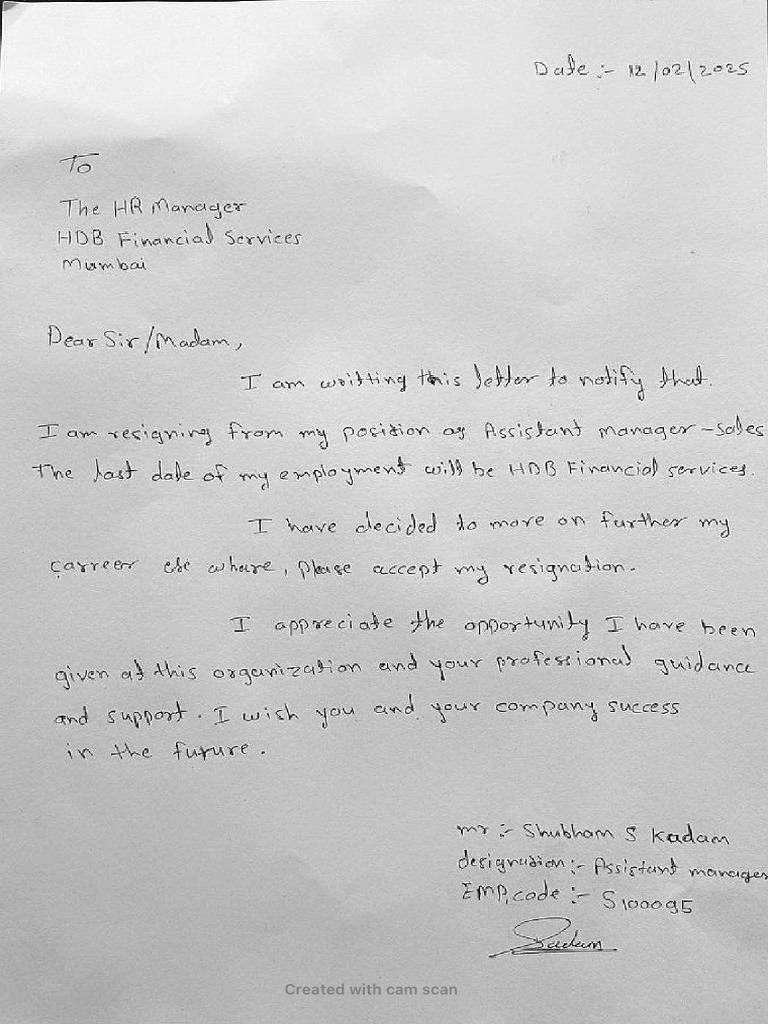 Date :- 12/02/2025
To
The HR Manager
HDB Financial Services
Mumbai
Dear Sir/Madam,
I am writting this letter to notify that.
I am resigning from my position as Assistant manager - Sales
The last date of my employment will be HDB Financial services.
I have decided to more on further my
carreer else where, please accept my resignation.
I appreciate the opportunity I have been
given at this organization and your professional guidance
and support. I wish you and your company success
in the future.
mr :- Shubham S Kadam
designation :- Assistant manager
EMP,code :- S100095
Kadam
Created with cam scan